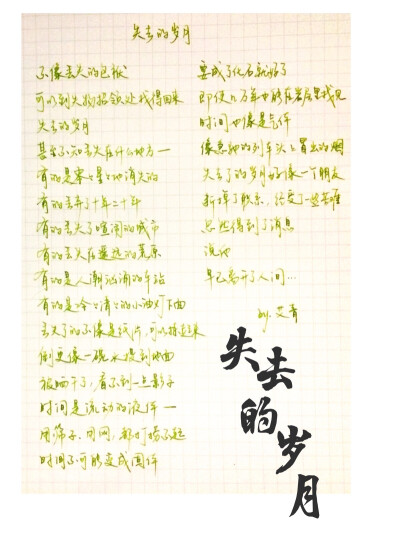 失去的岁月
不像丢失的包袱
可以到失物招领处找得回来
失去的岁月
甚至不知丢失在什么地方—
有的是零零星星地消失的
有的丢失了十年二十年
有的丢失了喧闹的城市
有的丢失在遥远的荒原
有的是人潮汹涌的车站
有的是冷冷清清的小油灯下面
丢失了的不像是纸片,可以拣起来
倒更像一碗水泼到地面
被晒干了,看不到一点影子
时间是流动的液体—
用筛子、用网,都打捞不起
时间不可能变成固体
要成了化石就好了
即使几万年也能在岩层里找见
时间也像是气体
像急驰的列车头上冒出的烟
失去了的岁月好像一个朋友
断掉了联系,经受了一些苦难
忽然得到了消息
说他
早已离开了人间…
by 艾青
失去的岁月